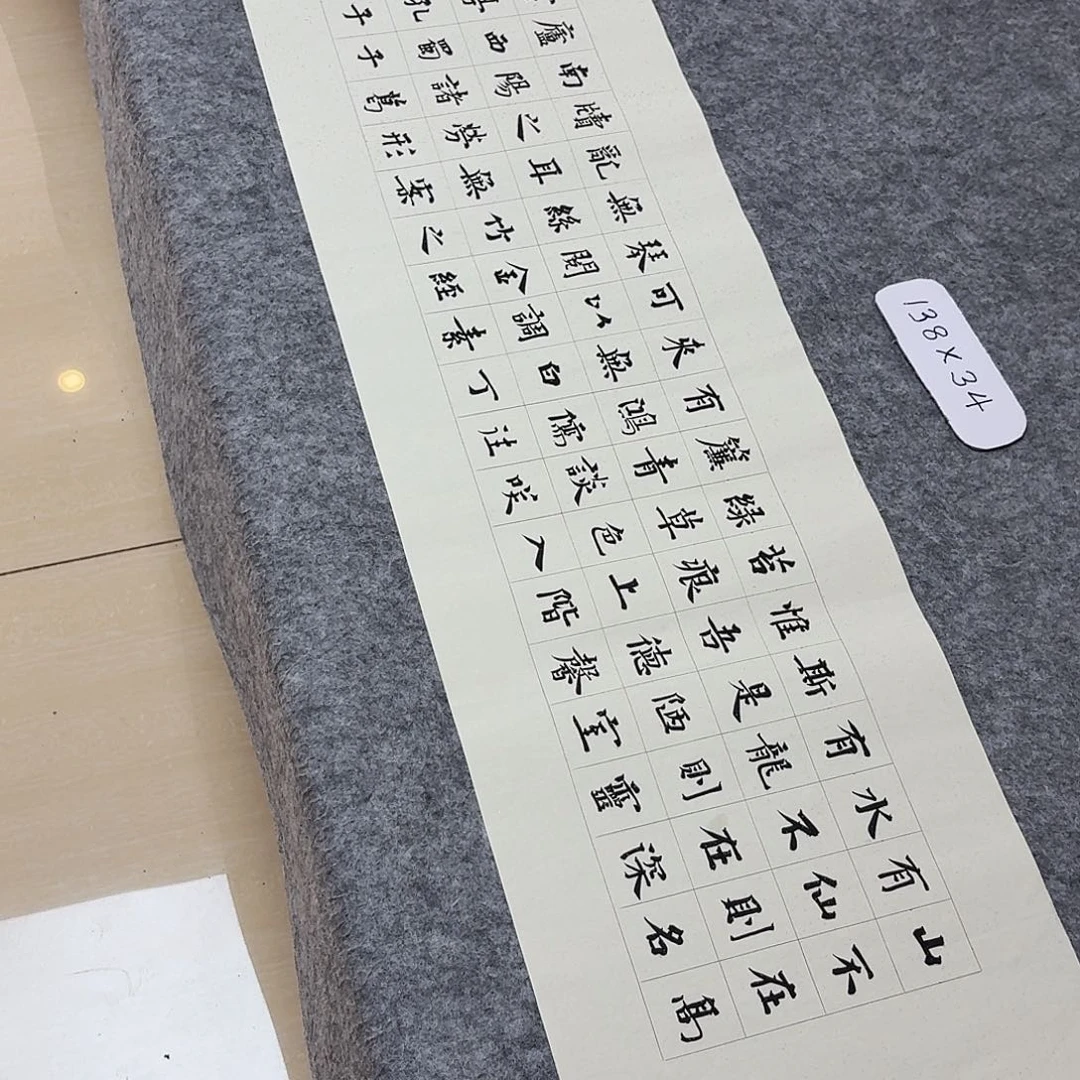 山不在高
有仙則名
水不在深
有龍則靈
斯是陋室
惟吾德馨
苔痕上階
綠草色入
簾青談咲
有鴻儒往
來無白丁
可以調素
琴閱金經
無絲竹之
亂耳無案
牘之勞形
南陽諸葛
廬西蜀子
孔子
138×34